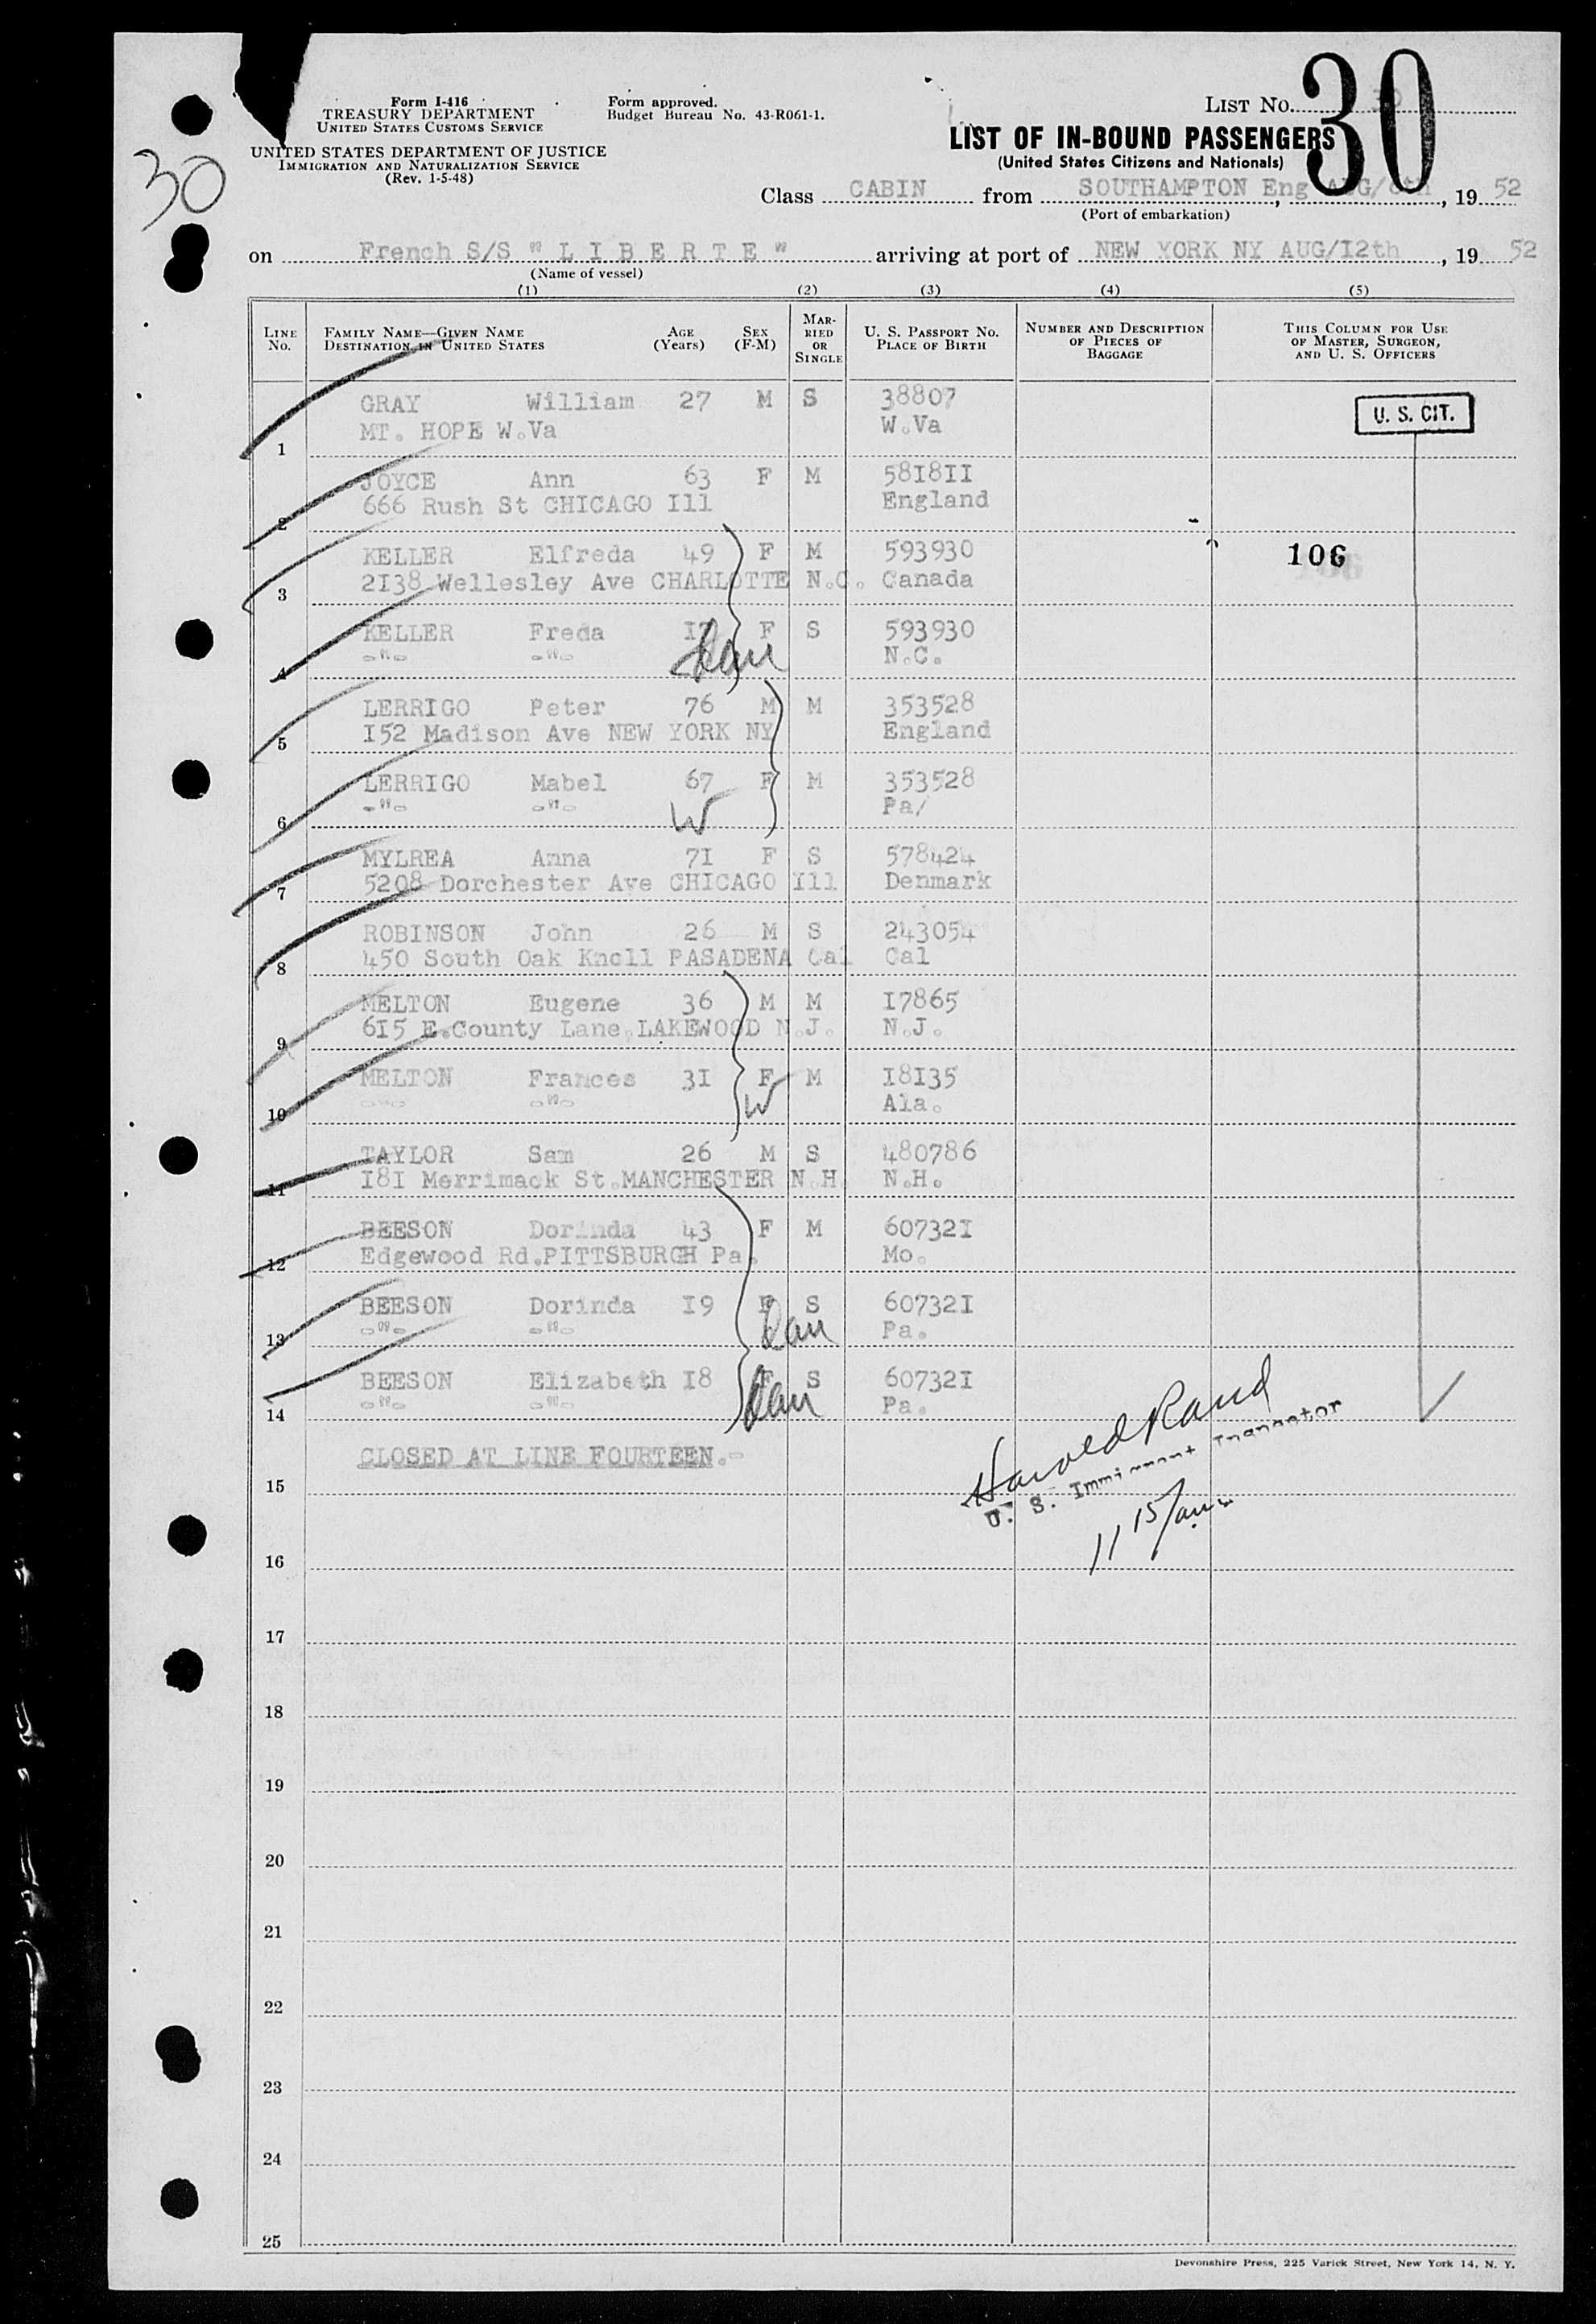 Form I-416
TREASURY DEPARTMENT
UNITED STATES CUSTOMS SERVICE
UNITED STATES DEPARTMENT OF JUSTICE
IMMIGRATION AND NATURALIZATION SERVICE
(Rev. 1-5-48)
Form approved.
Budget Bureau No. 43-R061-1.
LIST No. 30
30
LIST OF IN-BOUND PASSENGERS
(United States Citizens and Nationals)
Class CABIN from SOUTHAMPTON Eng , 19 52
(Port of embarkation)
on French S/S " L I B E R T E " arriving at port of NEW YORK NY AUG/12th , 19 52
(Name of vessel)
(1) (2) (3) (4) (5)
LINE No. FAMILY NAME—GIVEN NAME DESTINATION IN UNITED STATES AGE (Years) SEX (F-M) MARRIED OR SINGLE U. S. PASSPORT No. PLACE OF BIRTH NUMBER AND DESCRIPTION OF PIECES OF BAGGAGE THIS COLUMN FOR USE OF MASTER, SURGEON, AND U. S. OFFICERS
GRAY William 27 M S 38807 U. S. CIT.
1 MT. HOPE W.Va W.Va
JOYCE Ann 63 F M 581811
2 666 Rush St CHICAGO Ill England
KELLER Elfreda 49 F M 593930 106
3 2138 Wellesley Ave CHARLOTTE N.C. Canada
KELLER Freda 17 F S 593930
4 -"- -"- Dau N.C.
LERRIGO Peter 76 M M 353528
5 152 Madison Ave NEW YORK NY England
LERRIGO Mabel 67 F M 353528
6 -"- -"- W Pa/
MYLREA Anna 71 F S 578424
7 5208 Dorchester Ave CHICAGO Ill Denmark
ROBINSON John 26 M S 243054
8 450 South Oak Knoll PASADENA Cal Cal
MELTON Eugene 36 M M 17865
9 615 E.County Lane.LAKEWOOD N.J. N.J.
MELTON Frances 31 F M 18135
10 -"- -"- W Ala.
TAYLOR Sam 26 M S 480786
11 181 Merrimack St.MANCHESTER N.H. N.H.
BEESON Dorinda 43 F M 607321
12 Edgewood Rd.PITTSBURGH Pa. Mo.
BEESON Dorinda 19 F S 607321
13 -"- -"- Dau Pa.
BEESON Elizabeth 18 F S 607321
14 -"- -"- Dau Pa.
CLOSED AT LINE FOURTEEN.-
15
Harold Rand
U. S. Immigrant Inspector
11 15/am
16
17
18
19
20
21
22
23
24
25
Devonshire Press, 225 Varick Street, New York 14, N. Y.